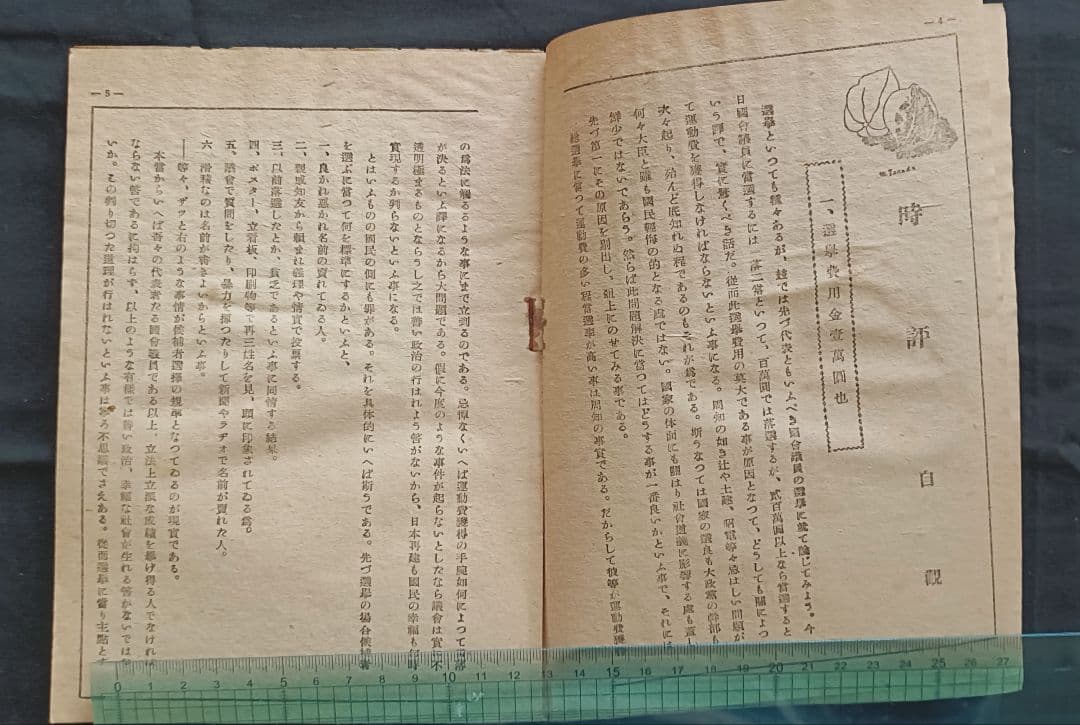 — 4 —
時評
自観
M. Tanaka
一、選擧費用金壹萬圓也
選擧といつても種々あるが、玆では先づ代表ともいふべき國會議員の選擧に就て論じてみよう。今
日國會議員に當選するには、落二當といつて、百萬圓では落選するが、貳百萬圓以上なら當選すると
いう譯で、實に驚くべき話だ。從而此選擧費用の莫大である事が原因となつて、どうしても闇によつ
て運動費を獲得しなければならないといふ事になる。周知の如き辻や土建、昭電等々忌はしい問題が
次々起り、殆んど底知れぬ程であるのもそれが爲である。斯うなつては國家の選良も大政黨の幹部も
何々大臣と雖も國民輕侮の的となる處ではない。國家の体面にも關はり社會道義に影響する處も蓋し
尠少ではないであらう。然らば此問題解決に當つてはどうする事が一番良いかといふ事で、それには
先づ第一にその原因を剔出し、俎上にのせてみる事である。
總選擧に當つて運動費の多い程當選率が高い事は周知の事實である。だからして彼等が運動費獲得
— 5 —
の爲法に觸るるような事にまで立到るのである。忌憚なくいへば運動費獲得の手腕如何によつて
が決るといふ譯になるから大問題である。假に今度のような事件が起らないとしたなら議會は實に不
透明極まるものとならうし之では善い政治の行はれよう筈がないから、日本再建も國民の幸福も何時
實現するか判らないといふ事になる。
とはいふものの國民の側にも罪がある。それを具体的にいへば斯うである。先づ選擧の場合候補者
を選ぶに當つて何を標準にするかといふと、
一、良かれ惡かれ名前の賣れてゐる人。
二、親戚知友から頼まれ義理や情實で投票する。
三、以前落選したとか、貧乏であるといふ事に同情する結果。
四、ポスター、立看板、印刷物等で再三姓名を見、頭に印象されてゐる爲。
五、議會で質問をしたり、暴力を揮つたりして新聞やラヂオで名前が賣れた人。
六、滑稽なのは名前が書きよいからといふ事。
——等々、ザツと右のような事情が候補者選擇の規準となつてゐるのが現實である。
本當からいへば吾々の代表者たる國會議員である以上、立法上立派な成績を擧げ得る人でなければ
ならない筈であるに拘はらず、以上のような有様では善い政治、幸福な社會が生れる筈がないではな
いか。この判り切つた道理が行はれないといふ事は寧ろ不思議でさえある。從而選擧に當り主點とす
0 1 2 3 4 5 6 7 8 9 10 11 12 13 14 15 16 17 18 19 20 21 22 23 24 25 26 27